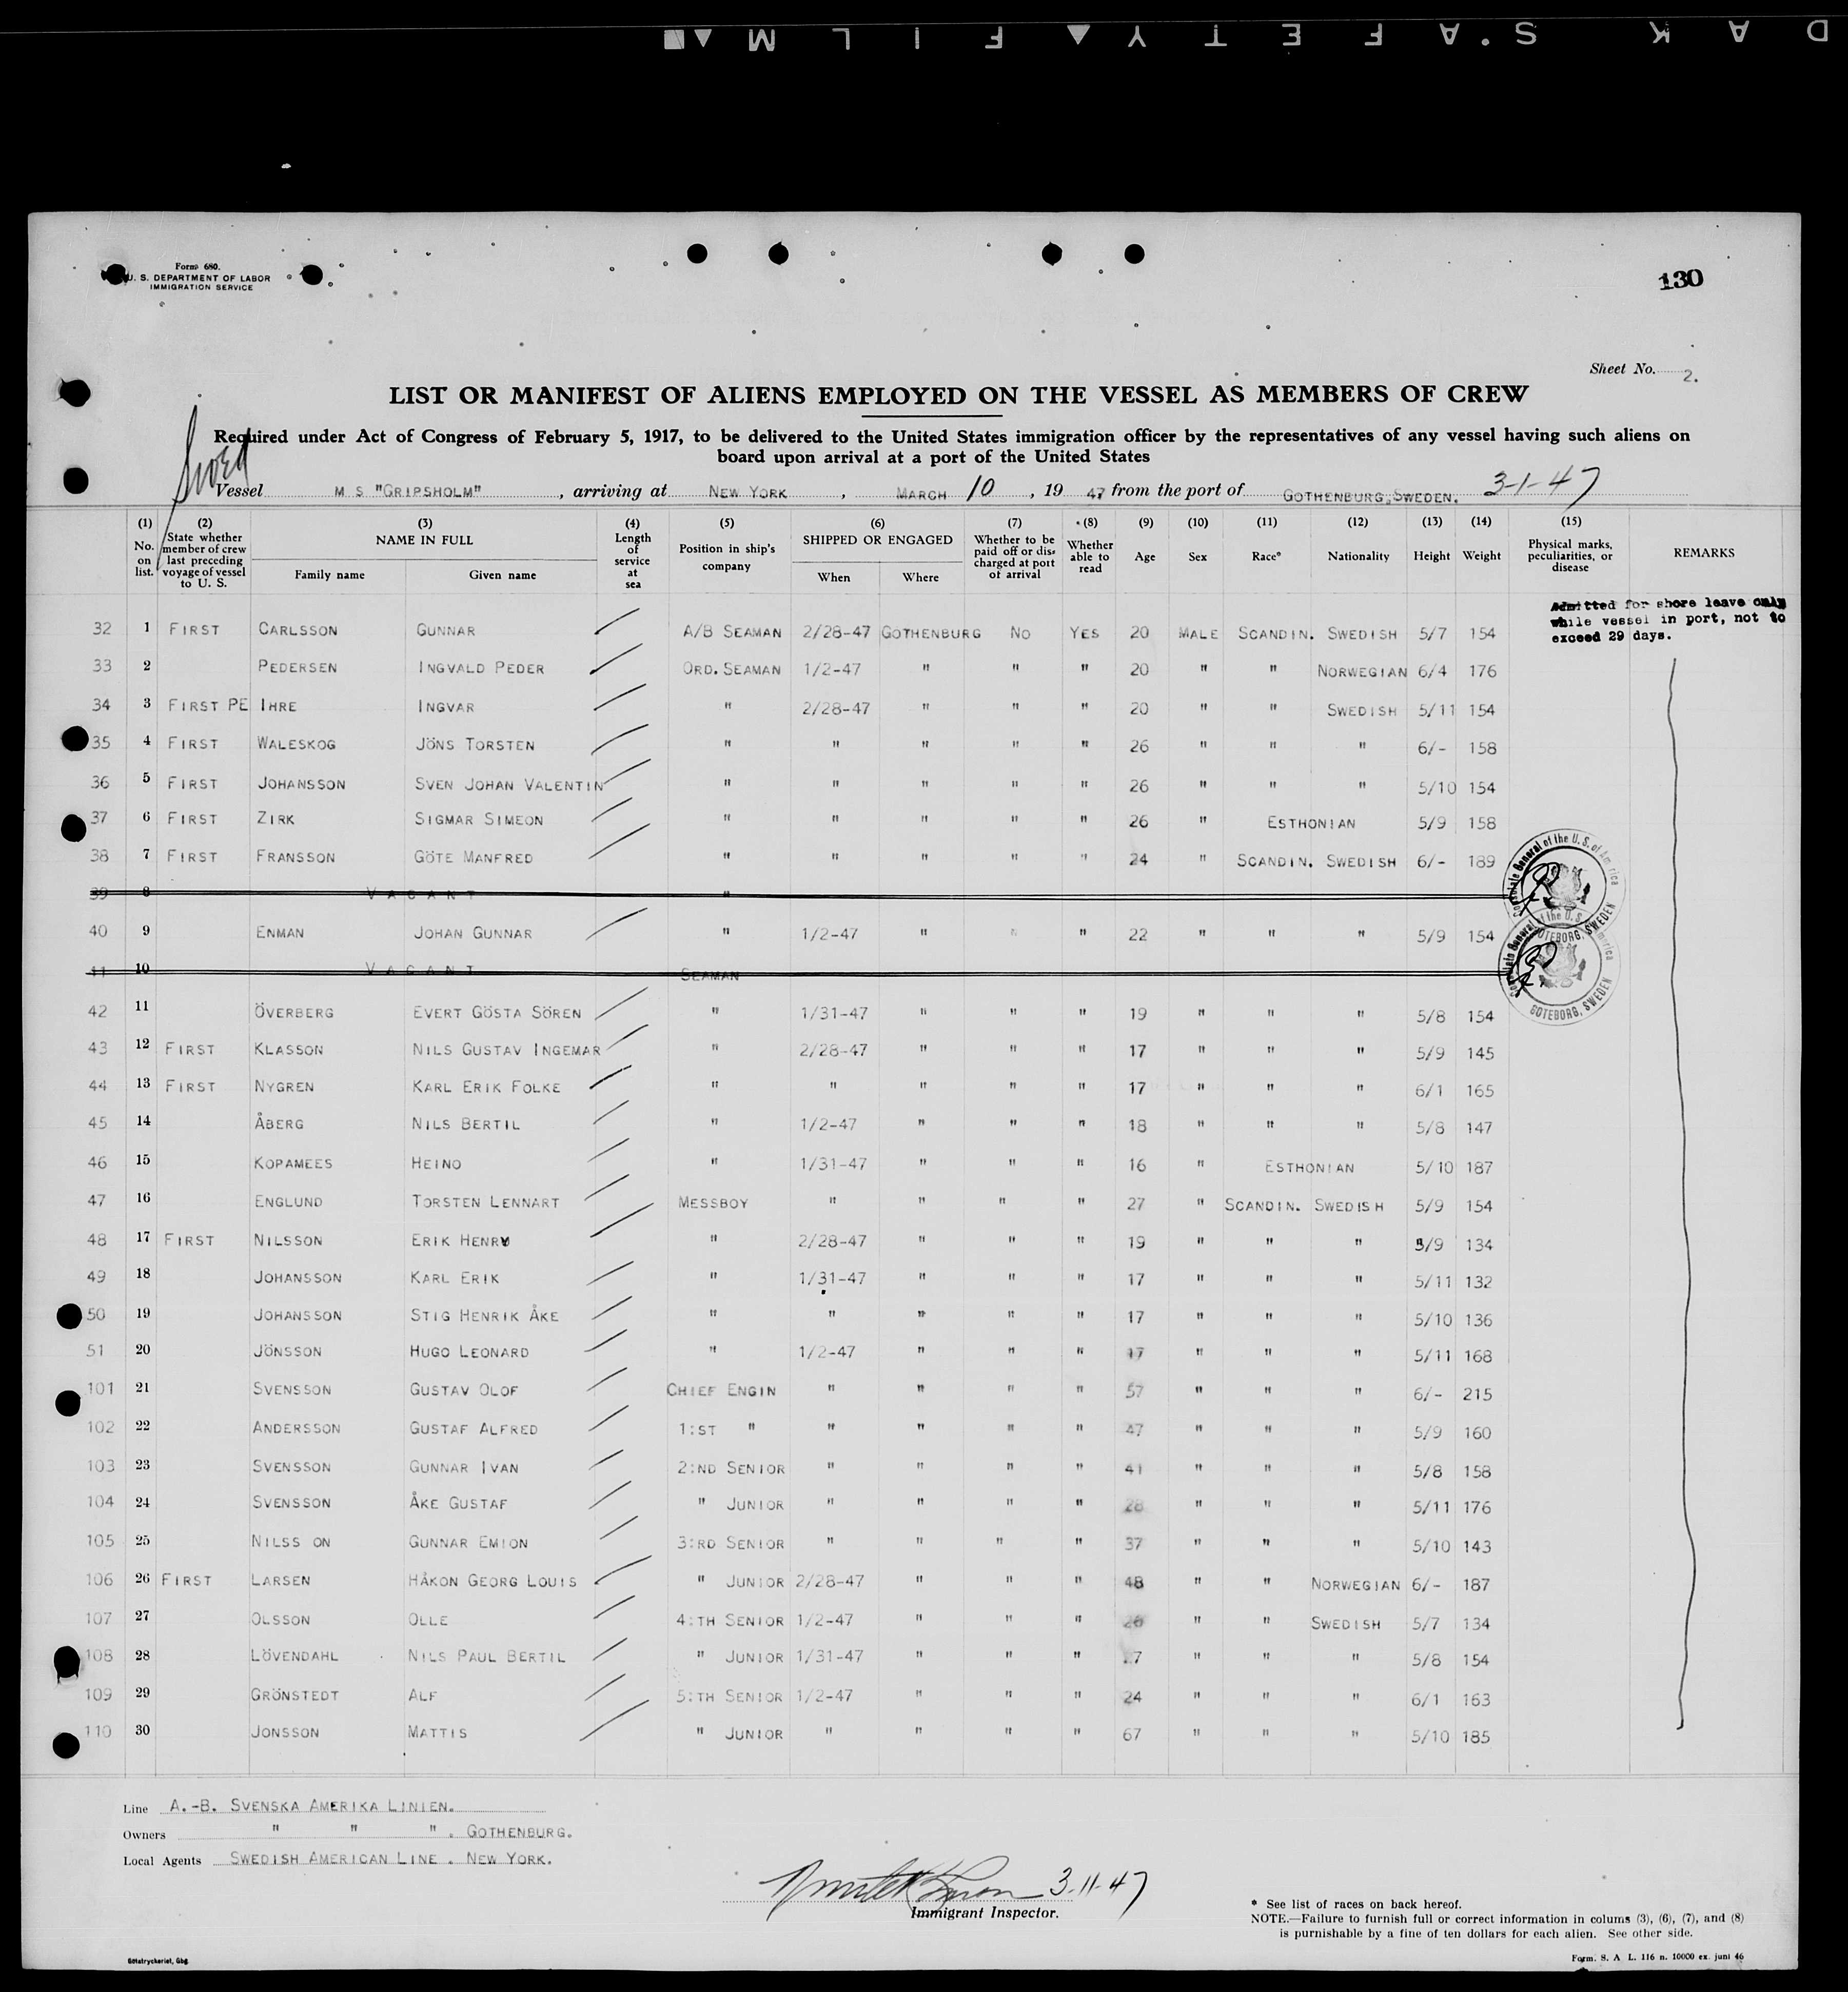 DAK S.AFETY▲FILM▲■
Form 680.
U. S. DEPARTMENT OF LABOR
IMMIGRATION SERVICE
130
Sheet No. 2.
LIST OR MANIFEST OF ALIENS EMPLOYED ON THE VESSEL AS MEMBERS OF CREW
Required under Act of Congress of February 5, 1917, to be delivered to the United States immigration officer by the representatives of any vessel having such aliens on
board upon arrival at a port of the United States
Swed
Vessel M S "GRIPSHOLM", arriving at NEW YORK, MARCH 10, 19 47 from the port of GOTHENBURG, SWEDEN. 3-1-47
(1) (2) (3) (4) (5) (6) (7) (8) (9) (10) (11) (12) (13) (14) (15)
No. on list. State whether member of crew last preceding voyage of vessel to U. S. NAME IN FULL Family name Given name Length of service at sea Position in ship's company SHIPPED OR ENGAGED When Where Whether to be paid off or discharged at port of arrival Whether able to read Age Sex Race* Nationality Height Weight Physical marks, peculiarities, or disease REMARKS
Admitted for shore leave only
while vessel in port, not to
exceed 29 days.
32 1 FIRST CARLSSON GUNNAR A/B SEAMAN 2/28-47 GOTHENBURG NO YES 20 MALE SCANDIN. SWEDISH 5/7 154
33 2 PEDERSEN INGVALD PEDER ORD. SEAMAN 1/2-47 " " " 20 " " NORWEGIAN 6/4 176
34 3 FIRST PE IHRE INGVAR " 2/28-47 " " " 20 " " SWEDISH 5/11 154
35 4 FIRST WALESKOG JÖNS TORSTEN " " " " " 26 " " " 6/- 158
36 5 FIRST JOHANSSON SVEN JOHAN VALENTIN " " " " " 26 " " " 5/10 154
37 6 FIRST ZIRK SIGMAR SIMEON " " " " " 26 " ESTHONIAN 5/9 158
38 7 FIRST FRANSSON GÖTE MANFRED " " " " " 24 " SCANDIN. SWEDISH 6/- 189
39 8 VACANT "
40 9 ENMAN JOHAN GUNNAR " 1/2-47 " " " 22 " " " 5/9 154
41 10 VACANT SEAMAN
42 11 ÖVERBERG EVERT GÖSTA SÖREN " 1/31-47 " " " 19 " " " 5/8 154
43 12 FIRST KLASSON NILS GUSTAV INGEMAR " 2/28-47 " " " 17 " " " 5/9 145
44 13 FIRST NYGREN KARL ERIK FOLKE " " " " " 17 " " " 6/1 165
45 14 ÅBERG NILS BERTIL " 1/2-47 " " " 18 " " " 5/8 147
46 15 KOPAMEES HEINO " 1/31-47 " " " 16 " ESTHONIAN 5/10 187
47 16 ENGLUND TORSTEN LENNART MESSBOY " " " " 27 " SCANDIN. SWEDISH 5/9 154
48 17 FIRST NILSSON ERIK HENRY " 2/28-47 " " " 19 " " " 5/9 134
49 18 JOHANSSON KARL ERIK " 1/31-47 " " " 17 " " " 5/11 132
50 19 JOHANSSON STIG HENRIK ÅKE " " " " " 17 " " " 5/10 136
51 20 JÖNSSON HUGO LEONARD " 1/2-47 " " " 17 " " " 5/11 168
101 21 SVENSSON GUSTAV OLOF CHIEF ENGIN " " " " 57 " " " 6/- 215
102 22 ANDERSSON GUSTAF ALFRED 1:ST " " " " " 47 " " " 5/9 160
103 23 SVENSSON GUNNAR IVAN 2:ND SENIOR " " " " 41 " " " 5/8 158
104 24 SVENSSON ÅKE GUSTAF " JUNIOR " " " " 28 " " " 5/11 176
105 25 NILSS ON GUNNAR EMION 3:RD SENIOR " " " " 37 " " " 5/10 143
106 26 FIRST LARSEN HÅKON GEORG LOUIS " JUNIOR 2/28-47 " " " 48 " " NORWEGIAN 6/- 187
107 27 OLSSON OLLE 4:TH SENIOR 1/2-47 " " " 26 " " SWEDISH 5/7 134
108 28 LÖVENDAHL NILS PAUL BERTIL " JUNIOR 1/31-47 " " " 27 " " " 5/8 154
109 29 GRÖNSTEDT ALF 5:TH SENIOR 1/2-47 " " " 24 " " " 6/1 163
110 30 JONSSON MATTIS " JUNIOR " " " " 67 " " " 5/10 185
Consulate General of the U. S. of America
GÖTEBORG, SWEDEN
GOTEBORG, SWEDEN
Line A.-B. SVENSKA AMERIKA LINIEN.
Owners " " " . GOTHENBURG.
Local Agents SWEDISH AMERICAN LINE . NEW YORK.
3-11-47
Immigrant Inspector.
* See list of races on back hereof.
NOTE.—Failure to furnish full or correct information in colums (3), (6), (7), and (8)
is punishable by a fine of ten dollars for each alien. See other side.
Götatryckeriet, Gbg
Form. S. A L. 116 n. 10000 ex. juni 46